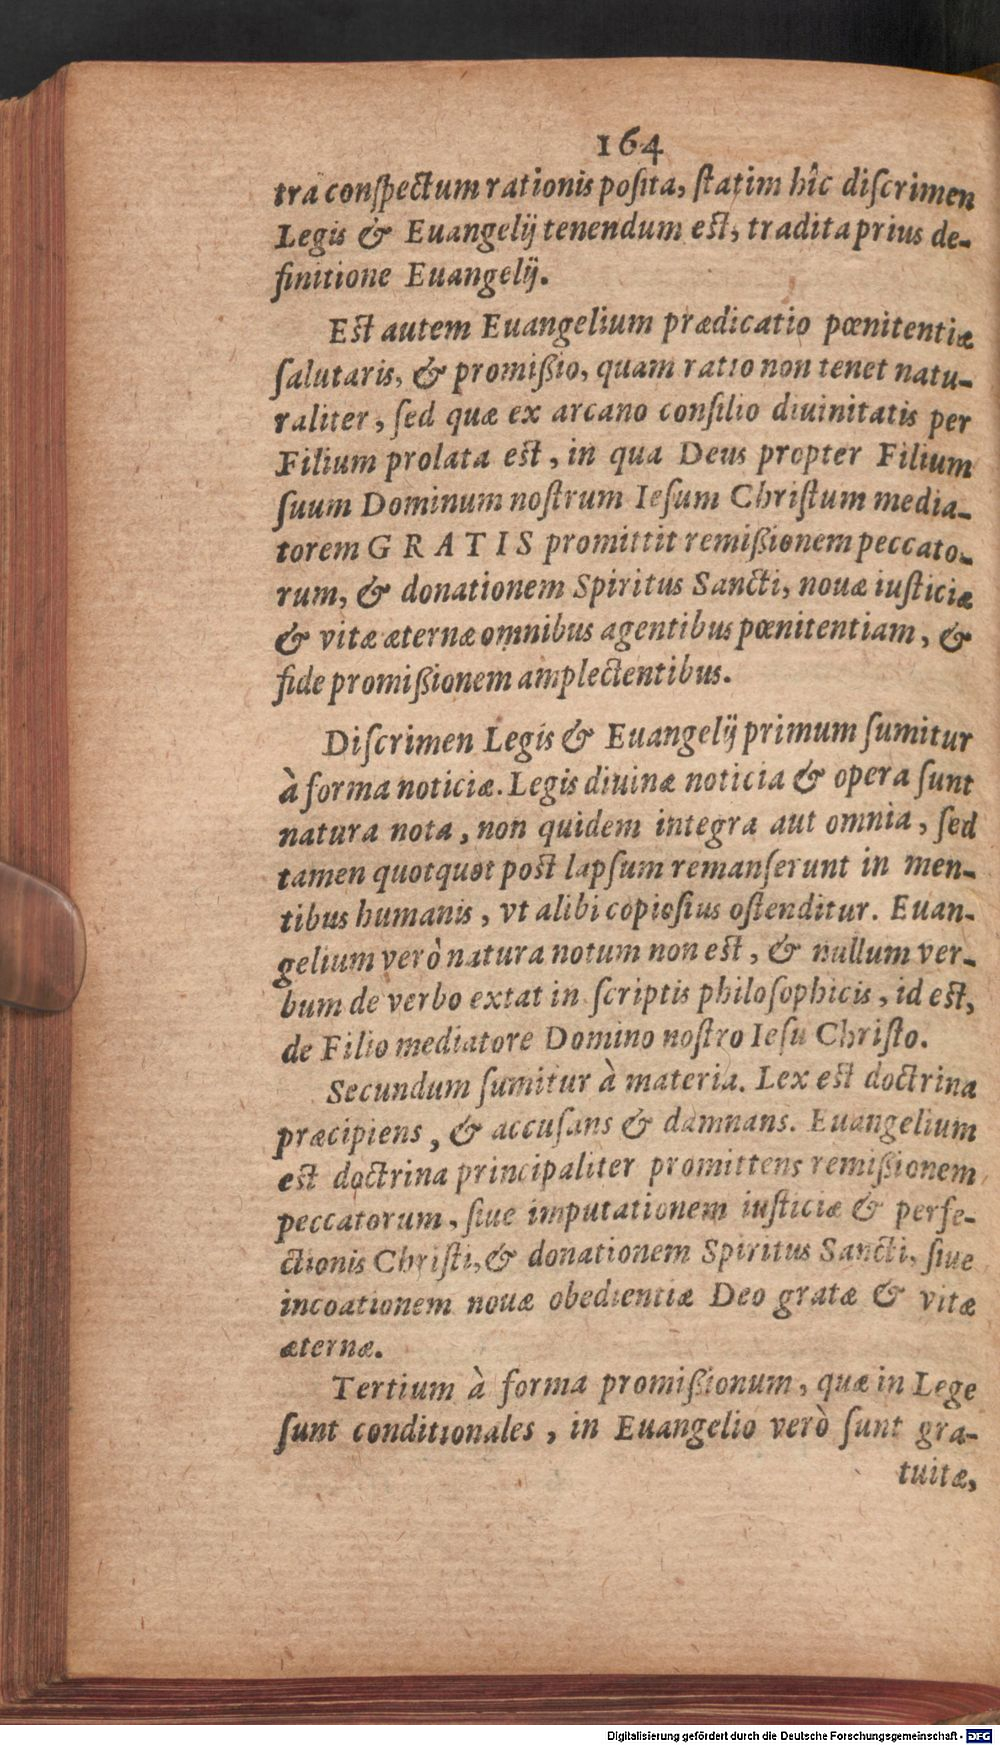 164
tra conſpectum rationis poſita, ſtatim hîc diſcrimen
Legis & Euangelij tenendum eſt, tradita prius de-
finitione Euangelij.
Eſt autem Euangelium prædicatio pœnitentiæ
ſalutaris, & promiſsio, quam ratio non tenet natu-
raliter, ſed quæ ex arcano conſilio diuinitatis per
Filium prolata eſt, in qua Deus propter Filium
ſuum Dominum noſtrum Ieſum Chriſtum media-
torem G R A T I S promittit remiſsionem peccato-
rum, & donationem Spiritus Sancti, nouæ iuſticiæ
& vitæ æternæ omnibus agentibus pœnitentiam, &
fide promiſsionem amplectentibus.
Diſcrimen Legis & Euangelij primum ſumitur
à forma noticiæ. Legis diuinæ noticia & opera ſunt
natura nota, non quidem integra aut omnia, ſed
tamen quotquot poſt lapſum remanſerunt in men-
tibus humanis, vt alibi copioſius oſtenditur. Euan-
gelium verò natura notum non eſt, & nullum ver-
bum de verbo extat in ſcriptis philoſophicis, id eſt,
de Filio mediatore Domino noſtro Ieſu Chriſto.
Secundum ſumitur à materia. Lex eſt doctrina
præcipiens, & accuſans & damnans. Euangelium
eſt doctrina principaliter promittens remiſsionem
peccatorum, ſiue imputationem iuſticiæ & perfe-
ctionis Chriſti, & donationem Spiritus Sancti, ſiue
incoationem nouæ obedientiæ Deo gratæ & vitæ
æternæ.
Tertium à forma promiſsionum, quæ in Lege
ſunt conditionales, in Euangelio verò ſunt gra-
tuitæ,
Digitalisierung gefördert durch die Deutsche Forschungsgemeinschaft - DFG